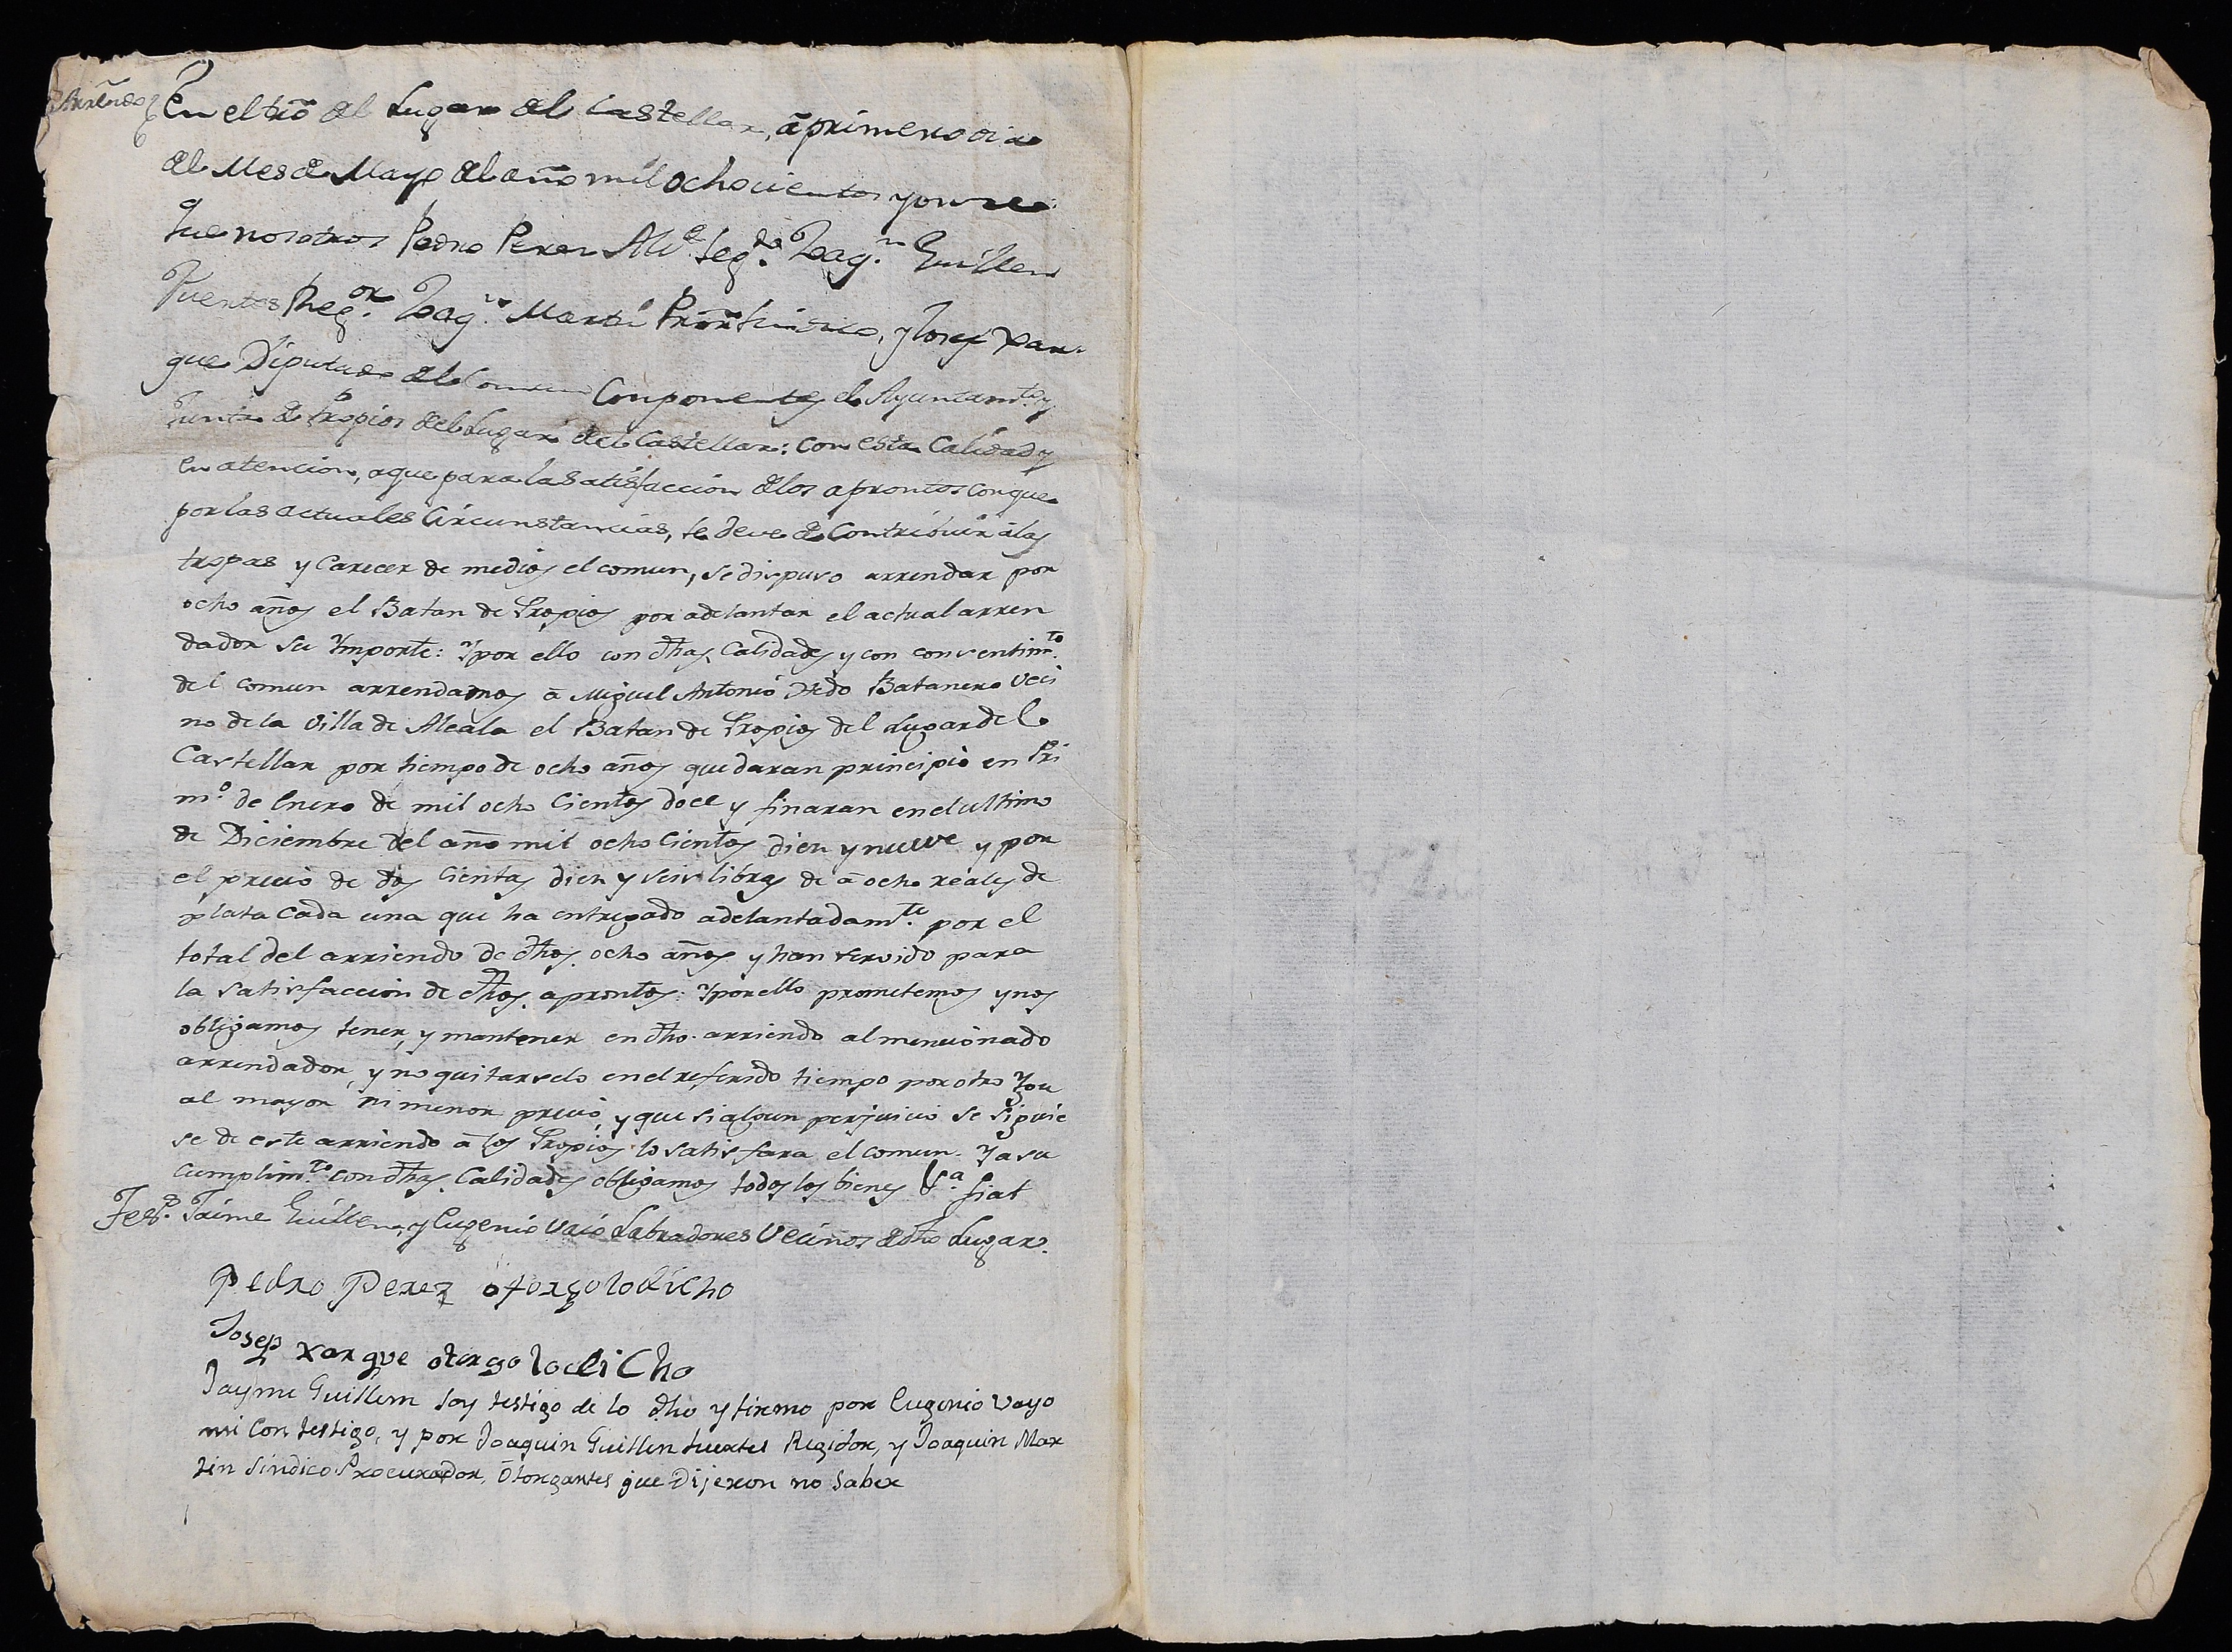 Arriendo
En el trõ del Lugar del Castellar, á primero dia
del Mes de Mayo del año mil ochocientos y onze
Que nosotros Pedro Perez Alde. segdo. Joaqn. Guillen
Fuertes Regor. Joaqn. Martin Prior. Sindico, y Josef Xar-
que Diputado del Comun Componentes el Ayuntamto. y
Junta de Propios del Lugar del Castellar: Con esta Calidad y
en atencion, a que para la satisfaccion de los aprontos con que
por las actuales Circunstancias, se deve de Contribuir á las
tropas y Carecer de medios el comun, se dispuso arrendar por
ocho años el Batan de Propios por adelantar el actual arren
dador su Ymporte: Y por ello con dhas. Calidades y con consentimto.
del comun arrendamos á Miguel Antonio Batanero Veci
no de la Villa de Alcala el Batan de Propios del Lugar del
Castellar por tiempo de ocho años que daran principio en Pri
mo. de Enero de mil ocho Cientos doce y finaran en el ultimo
de Diciembre del año mil ocho Cientos diez y nueve y por
el precio de dos Cientas diez y seis libras de á ocho reales de
plata Cada una que ha entregado adelantadamte. por el
total del arriendo de dhos. ocho años y han servido para
la satisfaccion de dhos. aprontos: Y por ello prometemos y nos
obligamos tener, y mantener en dho. arriendo al mencionado
arrendador, y no quitarselo en el referido tiempo por otro Ygu
al mayor ni menor precio, y que si algun perjuicio se siguie
se de este arriendo á los Propios lo satisfara el comun. Y a su
cumplimto. con dhas. Calidades obligamos todos los bienes &a. fiat
Testgs. Jaime Guillen, y Eugenio Vaio Labradores Vecinos de dho Lugar.
Pedro Perez otorgo lo dicho
Josep Xarque otorgo lo diCho
Jayme Guillem soy testigo de lo dho y firmo por Eugenio Vayo
mi Con testigo, y por Joaquin Guillen fuertes Regidor, y Joaquin Mar
tin Sindico Procurador, Otorgantes que Dijeron no Saber